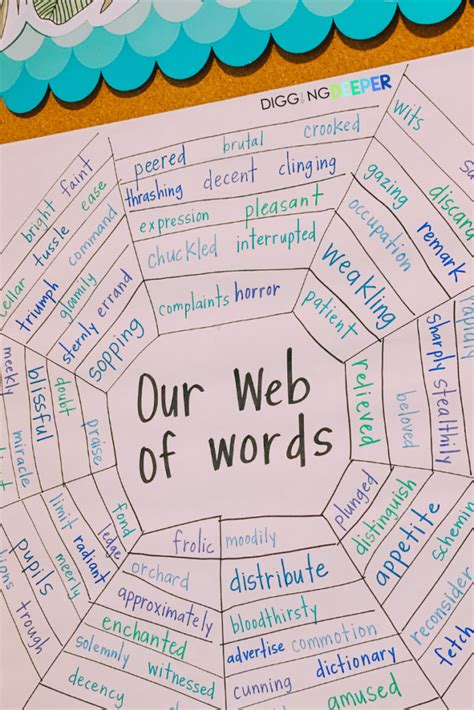 DIGGINGDEEPER
peered brutal crooked
thrashing decent clinging
expression pleasant
chuckled interrupted
complaints horror
wits
discard
gazing remark
occupation
weakling
patient
bright faint
tussle ease
cellar
triumph command
gloomily
sternly errand
sopping
Our Web
of words
meekly
miracle
blissful
doubt
praise
relieved
beloved
sharply stealthily
fond
ledge
limit radiant
meerly
pupils
trough
frolic
orchard
approximately
enchanted
solemnly witnessed
decency
moodily
distribute
bloodthirsty
advertise commotion
cunning dictionary
amused
plunged
distinguish
appetite
scheming
reconsider
fetch